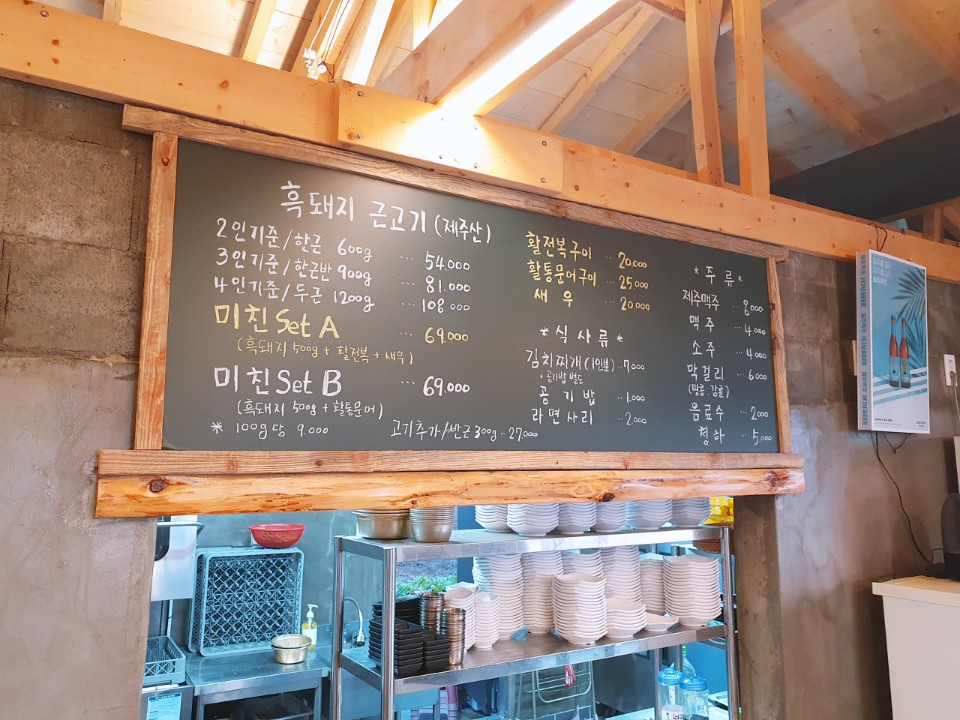 흑돼지 근고기 (제주산)
2인기준/한근 600g ... 54.000
3인기준/한근반 900g ... 81.000
4인기준/두근 1200g ... 108.000
미친 Set A ... 69.000
(흑돼지 500g + 활전복 + 새우)
미친 Set B ... 69.000
(흑돼지 500g + 활통문어)
* 100g당 9.000
고기추가/반근 300g .. 27.000
활전복구이 ... 20.000
활통문어구이 ... 25.000
새우 ... 20.000
* 식사류 *
김치찌개 (1인분) .. 7.000
• 공기밥 별도
공기밥 ... 1.000
라면사리 ... 2.000
* 주류 *
제주맥주 ... 8.000
맥주 ... 4.000
소주 ... 4.000
막걸리 ... 6.000
(땅콩, 감귤)
음료수 ... 2.000
청하 ... 5.000